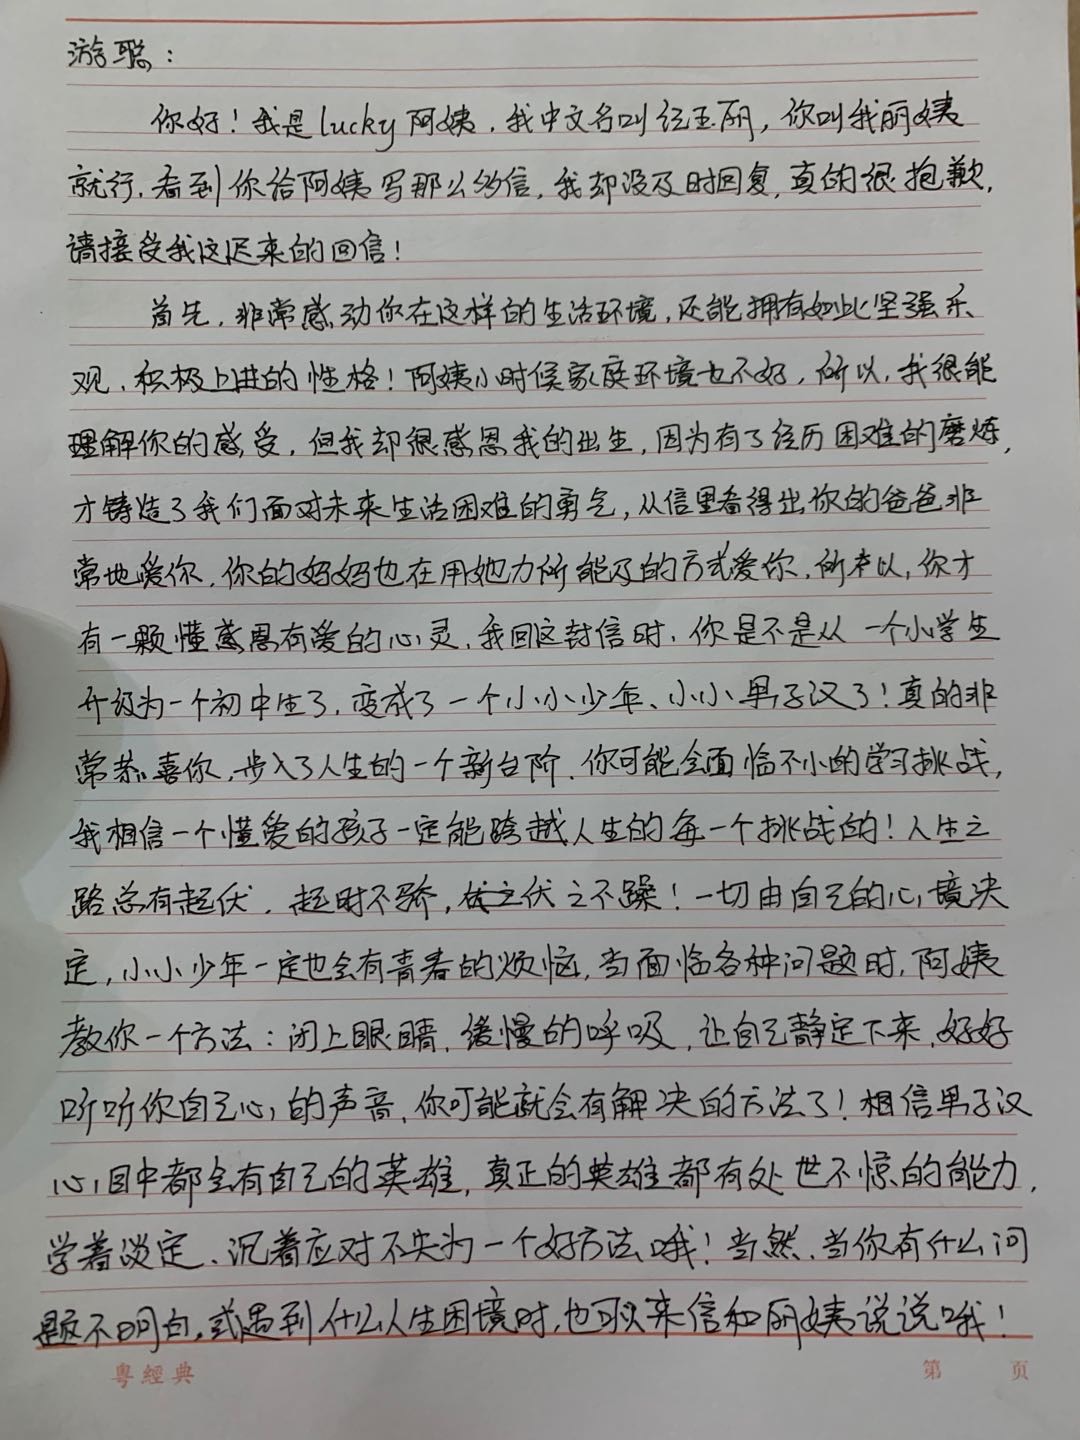 游聪：
你好！我是lucky阿姨，我中文名叫经玉丽，你叫我丽姨
就行，看到你给阿姨写那么的信，我却没及时回复，真的很抱歉，
请接受我这迟来的回信！
首先，非常感动你在这样的生活环境，还能拥有如此坚强乐
观、积极上进的性格！阿姨小时候家庭环境也不好，所以，我很能
理解你的感受，但我却很感恩我的出生，因为有了经历困难的磨炼，
才铸造了我们面对未来生活困难的勇气，从信里看得出你的爸爸非
常地爱你，你的妈妈也在用她力所能及的方式爱你，所以，你才
有一颗懂感恩有爱的心灵，我回这封信时，你是不是从一个小学生
升级为一个初中生了，变成了一个小小少年、小小男子汉了！真的非
常恭喜你，步入了人生的一个新台阶，你可能会面临不小的学习挑战，
我相信一个懂爱的孩子一定能跨越人生的每一个挑战的！人生之
路总有起伏，起时不骄，伏之不躁！一切由自己的心境决
定，小小少年一定也会有青春的烦恼，当面临各种问题时，阿姨
教你一个方法：闭上眼睛，缓慢的呼吸，让自己静定下来，好好
听听你自己心的声音，你可能就会有解决的方法了！相信男子汉
心目中都会有自己的英雄，真正的英雄都有处世不惊的能力，
学着淡定、沉着应对不失为一个好方法哦！当然，当你有什么问
题不明白，或遇到什么人生困境时，也可以来信和丽姨说说哦！
粤經典
第 页